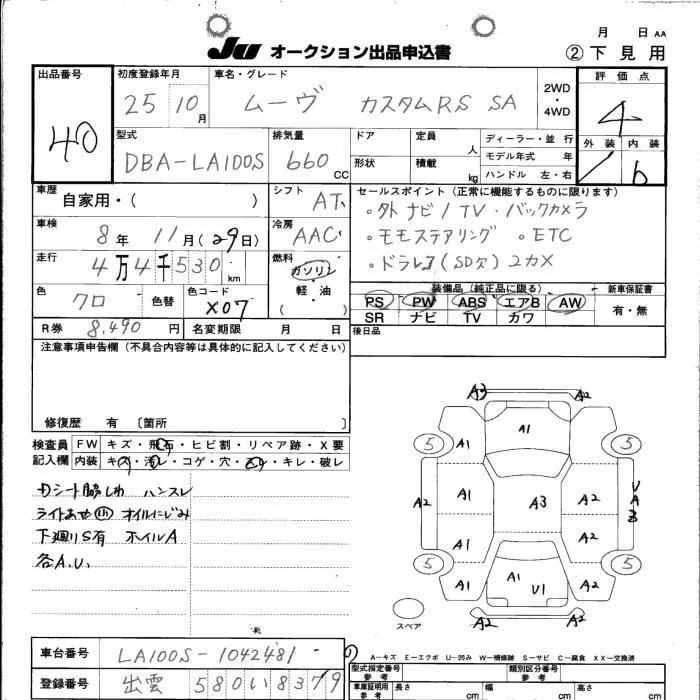 月 日 AA
JU オークション出品申込書 ②下見用
出品番号 初度登録年月 車名・グレード 2WD ・ 4WD 評価点
40 25 10月 ムーヴ カスタムRS SA 4
外装 内装
型式 排気量 ドア 定員 人 ディーラー・並行
DBA-LA100S 660 CC モデル年式 年
形状 積載 kg ハンドル 左・右 b
車歴 自家用・( ) シフト AT セールスポイント(正常に機能するものに限ります)
車検 8年 11月(29日) 冷房 AAC
。外ナビ/TV・バックカメラ
。モモステアリング 。ETC
。ドラレコ(SD欠)2カメ
走行 4万4千530km 燃料 ガソリン 軽・油 ( )
色 クロ 色替 色コード X07
装備品(純正品に限る) 新車保証書
PS PW ABS エアB AW 有・無
SR ナビ TV カワ
R券 8,490円 名変期限 月 日 後日品
注意事項申告欄(不具合内容等は具体的に記入してください)
修復歴 有 〔箇所 〕
検査員記入欄 FW キズ・飛石・ヒビ割・リペア跡・X要
内装 キズ・汚レ・コゲ・穴・スレ・キレ・破レ
シート脇しわ ハンスレ
ライトあせ小 オイルにじみ
下廻りS有 ホイルA
各A.U.
A3 A2
A1
5 5
A1 A1
A2 A1 A3 A2 V A B
A1 A2
5 5
A1 A1 V1 A2
A2 A2
スペア
A-キズ E-エクボ U-凹み W-補修跡 S-サビ C-腐食 XX-交換済
車台番号 LA100S-1042481
登録番号 出雲 580 い 8379
型式指定番号 参考 類別区分番号 参考
車庫証明用 参考 長さ cm 幅 cm 高さ cm